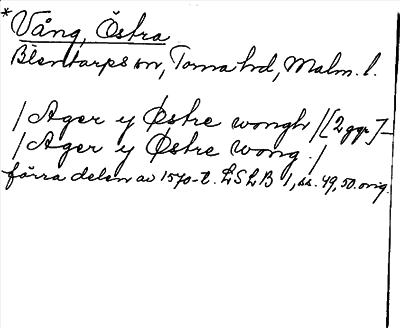 * Vång, Östra
Blentarps sn, Torna hd, Malm. l.
/ Ager y Østre wongh / [2 ggr] –
/ Ager y Østre wong. /
förra delen av 1570-t. LSLB 1, ss. 49, 50. orig.